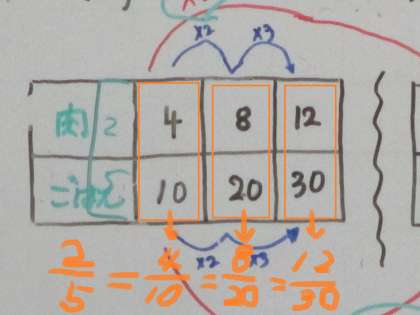 ×2 ×3
2 4 8 12
5 10 20 30
×2 ×3
2/5 = 4/10 = 8/20 = 12/30